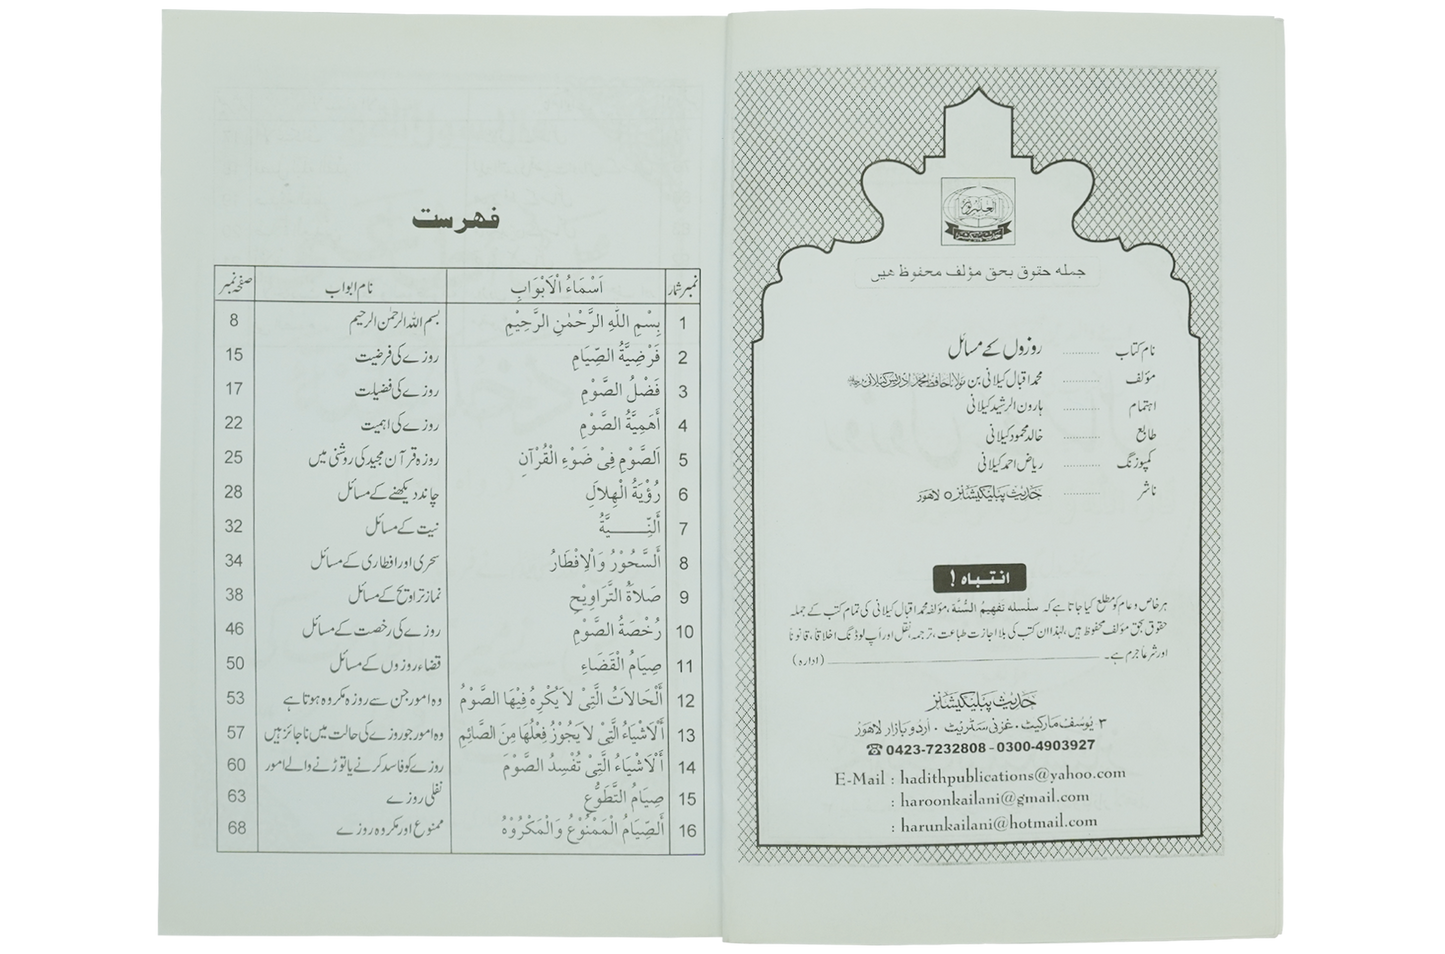 جملہ حقوق بحق مؤلف محفوظ ھیں
نام کتاب ............ روزوں کے مسائل
مؤلف ............ محمد اقبال کیلانی بن مولانا حافظ محمد ادریس کیلانی
اہتمام ............ ہارون الرشید کیلانی
طابع ............ خالد محمود کیلانی
کمپوزنگ ............ ریاض احمد کیلانی
ناشر ............ حدیث پبلیکیشنز ○ لاہور
انتباہ !
ہر خاص و عام کو مطلع کیا جاتا ہے کہ سلسلہ تفہیم السُّنَّة، مؤلفہ محمد اقبال کیلانی کی تمام کتب کے جملہ
حقوق بحق مؤلف محفوظ ہیں، لہٰذا ان کتب کی بلا اجازت طباعت، ترجمہ، نقل اور اَپ لوڈنگ اخلاقاً، قانوناً
اور شرعاً جرم ہے۔ (ادارہ)
حدیث پبلیکیشنز
۳ یوسف مارکیٹ، غزنی سٹریٹ، اردو بازار لاہور
☎ 0423-7232808 - 0300-4903927
E-Mail : hadithpublications@yahoo.com
: haroonkailani@gmail.com
: harunkailani@hotmail.com
فہرست
نمبر شمار اَسْمَاءُ الْاَبْوَابِ نام ابواب صفحہ نمبر
1 بِسْمِ اللّٰهِ الرَّحْمٰنِ الرَّحِيْمِ بسم اللہ الرحمٰن الرحیم 8
2 فَرْضِيَّةُ الصِّيَامِ روزے کی فرضیت 15
3 فَضْلُ الصَّوْمِ روزے کی فضیلت 17
4 أَهَمِيَّةُ الصَّوْمِ روزے کی اہمیت 22
5 اَلصَّوْمِ فِىْ ضَوْءِ الْقُرْآنِ روزہ قرآن مجید کی روشنی میں 25
6 رُؤْيَةُ الْهِلَالِ چاند دیکھنے کے مسائل 28
7 أَلنِّـــيَّةُ نیت کے مسائل 32
8 أَلسَّحُوْرُ وَالْاِفْطَارُ سحری اور افطاری کے مسائل 34
9 صَلاَةُ التَّرَاوِيْحِ نماز تراویح کے مسائل 38
10 رُخْصَةُ الصَّوْمِ روزے کی رخصت کے مسائل 46
11 صِيَامُ الْقَضَاءِ قضاء روزوں کے مسائل 50
12 أَلْحَالاَتُ الَّتِىْ لاَ يُكْرِهُ فِيْهَا الصَّوْمُ وہ امور جن سے روزہ مکروہ ہوتا ہے 53
13 أَلْاَشْيَاءُ الَّتِىْ لاَ يَجُوْزُ فِعْلُهَا مِنَ الصَّائِمِ وہ امور جو روزے کی حالت میں ناجائز ہیں 57
14 أَلْاَشْيَاءُ الَّتِىْ تُفْسِدُ الصَّوْمَ روزے کو فاسد کرنے یا توڑنے والے امور 60
15 صِيَامُ التَّطَوُّعِ نفلی روزے 63
16 أَلصِّيَامُ الْمَمْنُوْعُ وَالْمَكْرُوْهُ ممنوع اور مکروہ روزے 68